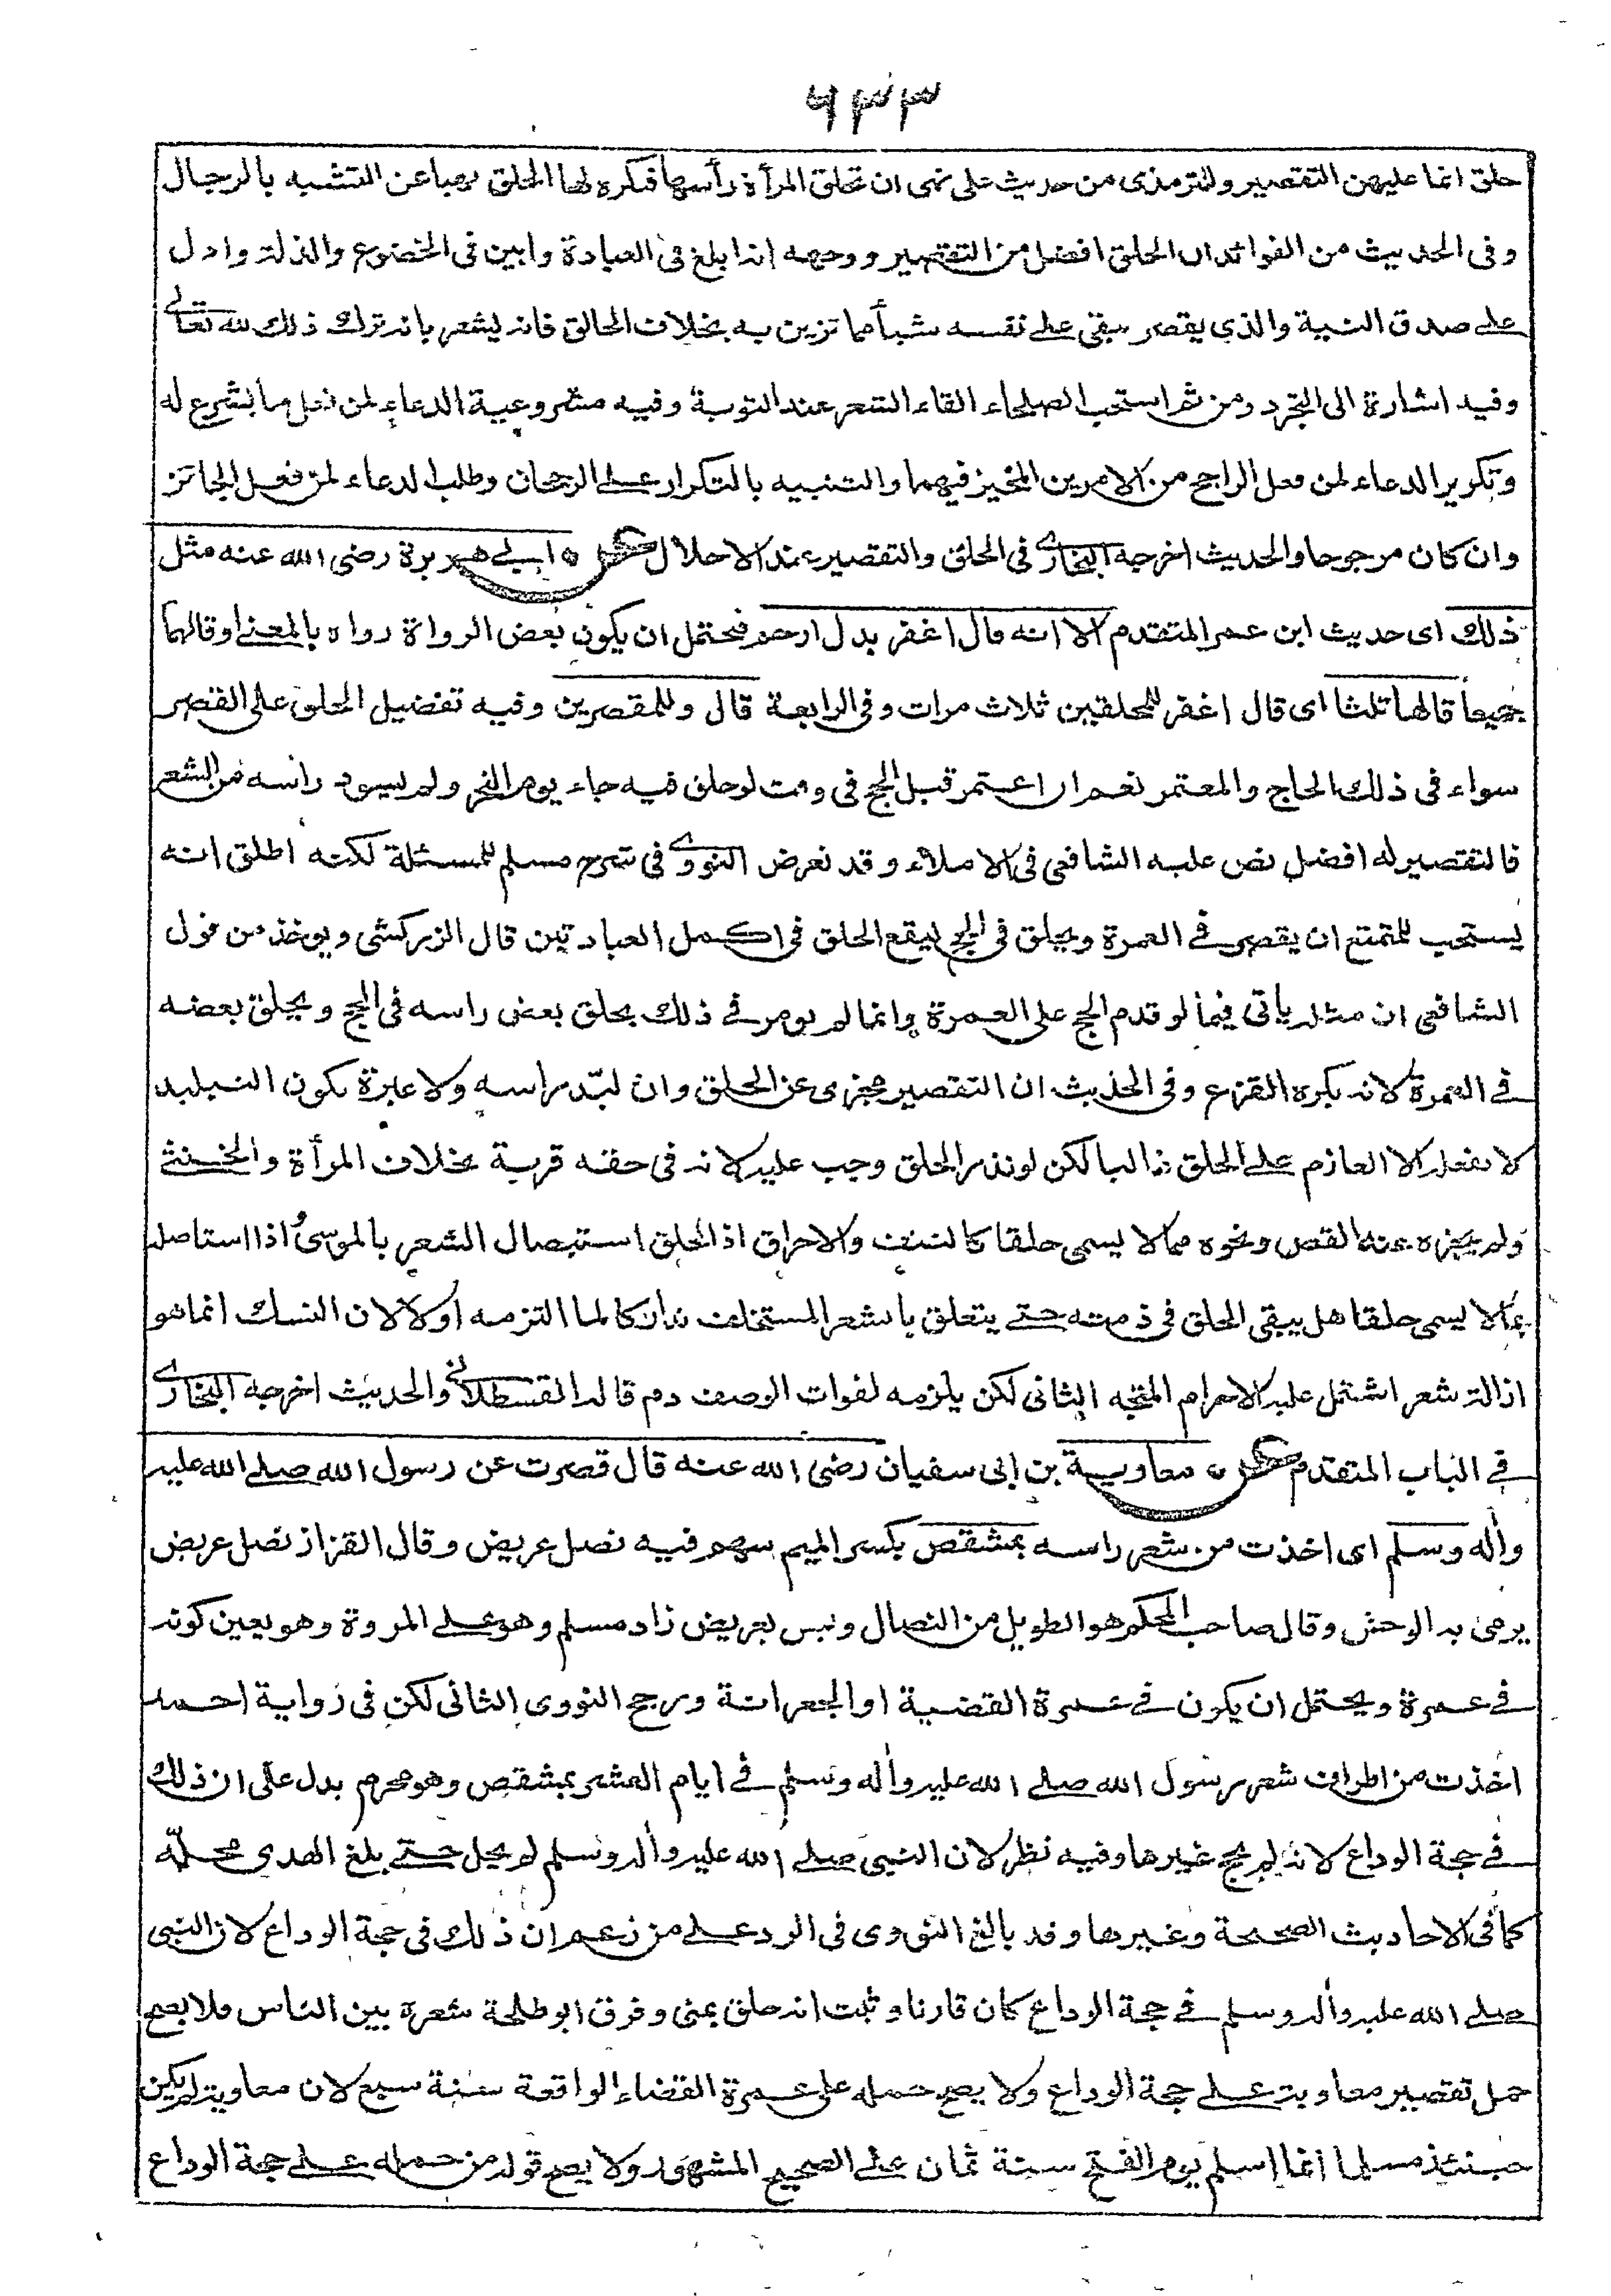 ٦٣٣
حلق انما عليهن التقصير وللترمذى من حديث على نهى ان تحلق المرأة رأسها فيكره لها الحلق نهيا عن التشبه بالرجال
وفى الحديث من الفوائد ان الحلق افضل من التقصير ووجهه انه ابلغ فى العبادة وابين فى الخضوع والذلة وادل
على صدق النية والذى يقصر يبقى على نفسه شيأ مما تزين به بخلاف الحالق فانه يشعر بانه ترك ذلك لله تعالى
وفيه اشارة الى التجرد ومن ثم استحب الصلحاء القاء الشعر عند التوبة وفيه مشروعية الدعاء لمن فعل ما يشرع له
وتكرير الدعاء لمن فعل الراجح من الامرين المخير فيهما والتنبيه بالتكرار على الرجحان وطلب الدعاء لمن فعل الجائز
وان كان مرجوحا والحديث اخرجه البخارى فى الحلق والتقصير عند الاحلال عن ابى هريرة رضى الله عنه مثل
ذلك اى حديث ابن عمر المتقدم الا انه قال اغفر بدل ارحم فيحتمل ان يكون بعض الرواة رواه بالمعنى او قالهما
جميعا قالها ثلثا اى قال اغفر للمحلقين ثلاث مرات وفى الرابعة قال وللمقصرين وفيه تفضيل الحلق على القصر
سواء فى ذلك الحاج والمعتمر نعم ان اعتمر قبل الحج فى وقت لو حلق فيه جاء يوم النحر ولم يسود راسه من الشعر
فالتقصير له افضل نص عليه الشافعى فى الاملاء وقد تعرض النووى فى شرح مسلم للمسئلة لكنه اطلق انه
يستحب للمتمتع ان يقصر فى العمرة ويحلق فى الحج ليقع الحلق فى اكمل العبادتين قال الزركشى ويوخذ من قول
الشافعى ان مثله يأتى فيما لو قدم الحج على العمرة وانما لم يومر فى ذلك بحلق بعض راسه فى الحج ويحلق بعضه
فى العمرة لانه يكره القزع وفى الحديث ان التقصير مجزى عن الحلق وان لبّد راسه ولا عبرة بكون التلبيد
لا يفعله الا العازم على الحلق غالبا لكن لو نذر الحلق وجب عليه لانه فى حقه قربة بخلاف المرأة والخنثى
ولم يجزه عنه القص ونحوه مما لا يسمى حلقا كالنتف والاحراق اذ الحلق استيصال الشعر بالموسى واذا استاصله
بما لا يسمى حلقا هل يبقى الحلق فى ذمته حتى يتعلق بالشعر المستخلف تداركا لما التزمه اولا لان النسك انما هو
ازالة شعر اشتمل عليه الاحرام المتجه الثانى لكن يلزمه لفوات الوصف دم قاله القسطلانى والحديث اخرجه البخارى
فى الباب المتقدم عن معاوية بن ابى سفيان رضى الله عنه قال قصرت عن رسول الله صلى الله عليه
وأله وسلم اى اخذت من شعر راسه بمشقص بكسر الميم سهم فيه نصل عريض وقال القزاز نصل عريض
يرمى به الوحش وقال صاحب المحكم هو الطويل من النصال وليس بعريض زاد مسلم وهو على المروة وهو يعين كونه
فى عمرة ويحتمل ان يكون فى عمرة القضية او الجعرانة ورجح النووى الثانى لكن فى رواية احمد
اخذت من اطراف شعر رسول الله صلى الله عليه وأله وسلم فى ايام العشر بمشقص وهو محرم يدل على ان ذلك
فى حجة الوداع لانه لم يحج غيرها وفيه نظر لان النبى صلى الله عليه وأله وسلم لم يحل حتى بلغ الهدى محلّه
كما فى الاحاديث الصحيحة وغيرها وقد بالغ النووى فى الرد على من زعم ان ذلك فى حجة الوداع لان النبى
صلى الله عليه وأله وسلم فى حجة الوداع كان قارنا وثبت انه حلق بمنى وفرق ابو طلحة شعره بين الناس فلا يصح
حمل تقصير معاوية على حجة الوداع ولا يصح حمله على عمرة القضاء الواقعة سنة سبع لان معاوية لم يكن
حينئذ مسلما انما اسلم يوم الفتح سنة ثمان على الصحيح المشهور ولا يصح قول من حمله على حجة الوداع